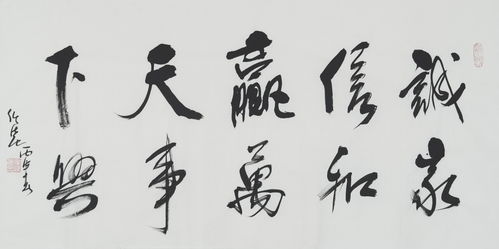 誠信贏天下
家和萬事興